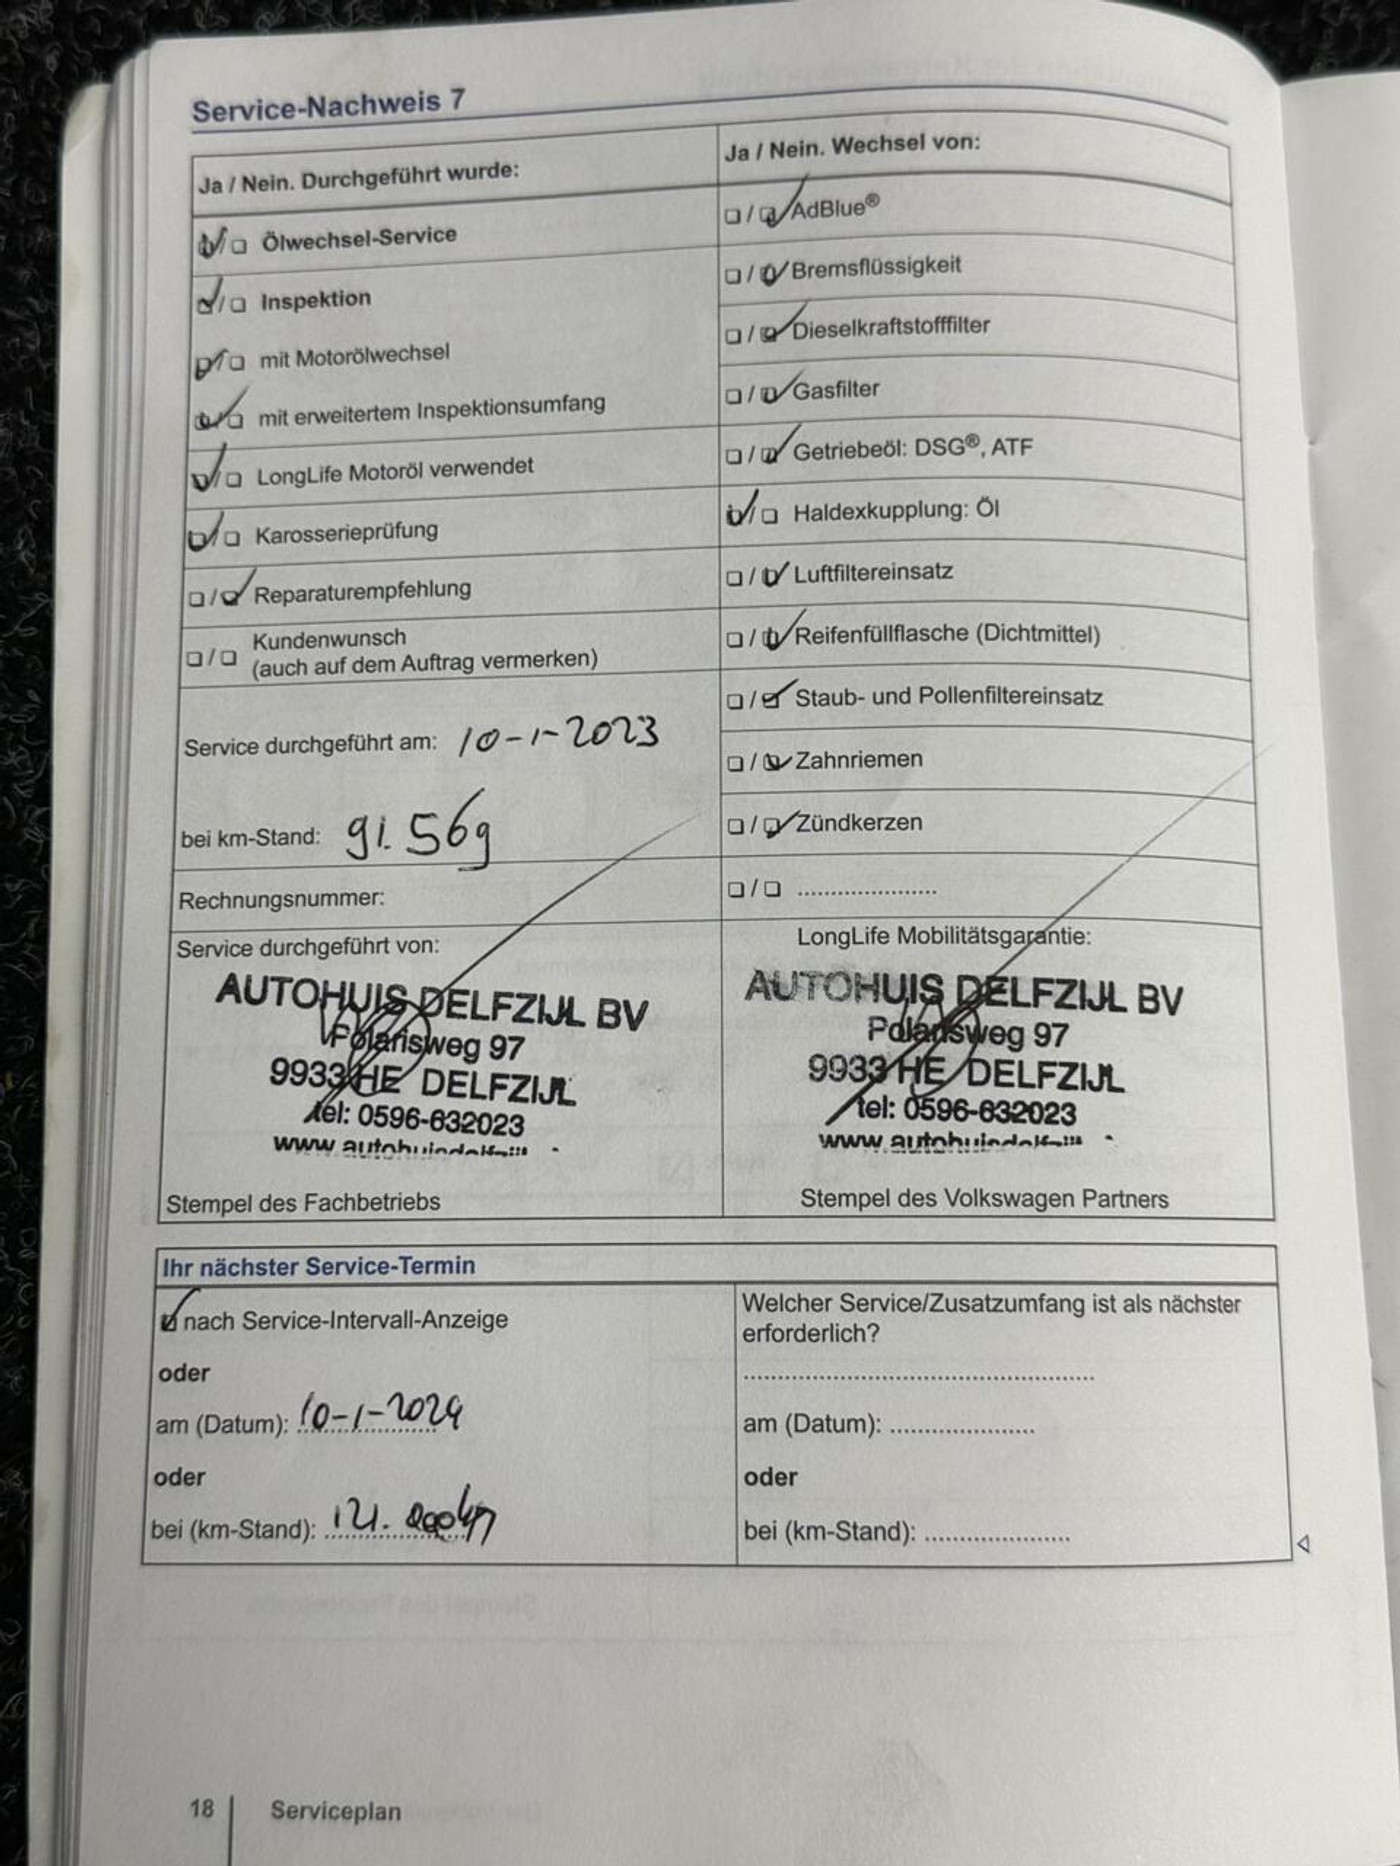 Service-Nachweis 7
Ja / Nein. Durchgeführt wurde:
Ölwechsel-Service
Inspektion
mit Motorölwechsel
mit erweitertem Inspektionsumfang
LongLife Motoröl verwendet
Karosserieprüfung
Reparaturempfehlung
Kundenwunsch
(auch auf dem Auftrag vermerken)
Service durchgeführt am: 10-1-2023
bei km-Stand: 91.569
Rechnungsnummer:
Service durchgeführt von:
AUTOHUIS DELFZIJL BV
Polarisweg 97
9933 HE DELFZIJL
tel: 0596-632023
Stempel des Fachbetriebs
Ja / Nein. Wechsel von:
AdBlue®
Bremsflüssigkeit
Dieselkraftstofffilter
Gasfilter
Getriebeöl: DSG®, ATF
Haldexkupplung: Öl
Luftfiltereinsatz
Reifenfüllflasche (Dichtmittel)
Staub- und Pollenfiltereinsatz
Zahnriemen
Zündkerzen
....................
LongLife Mobilitätsgarantie:
AUTOHUIS DELFZIJL BV
Polarisweg 97
9933 HE DELFZIJL
tel: 0596-632023
Stempel des Volkswagen Partners
Ihr nächster Service-Termin
nach Service-Intervall-Anzeige
oder
am (Datum): 10-1-2024
oder
bei (km-Stand): 121.
Welcher Service/Zusatzumfang ist als nächster
erforderlich?
am (Datum): ....................
oder
bei (km-Stand): ....................
18 Serviceplan